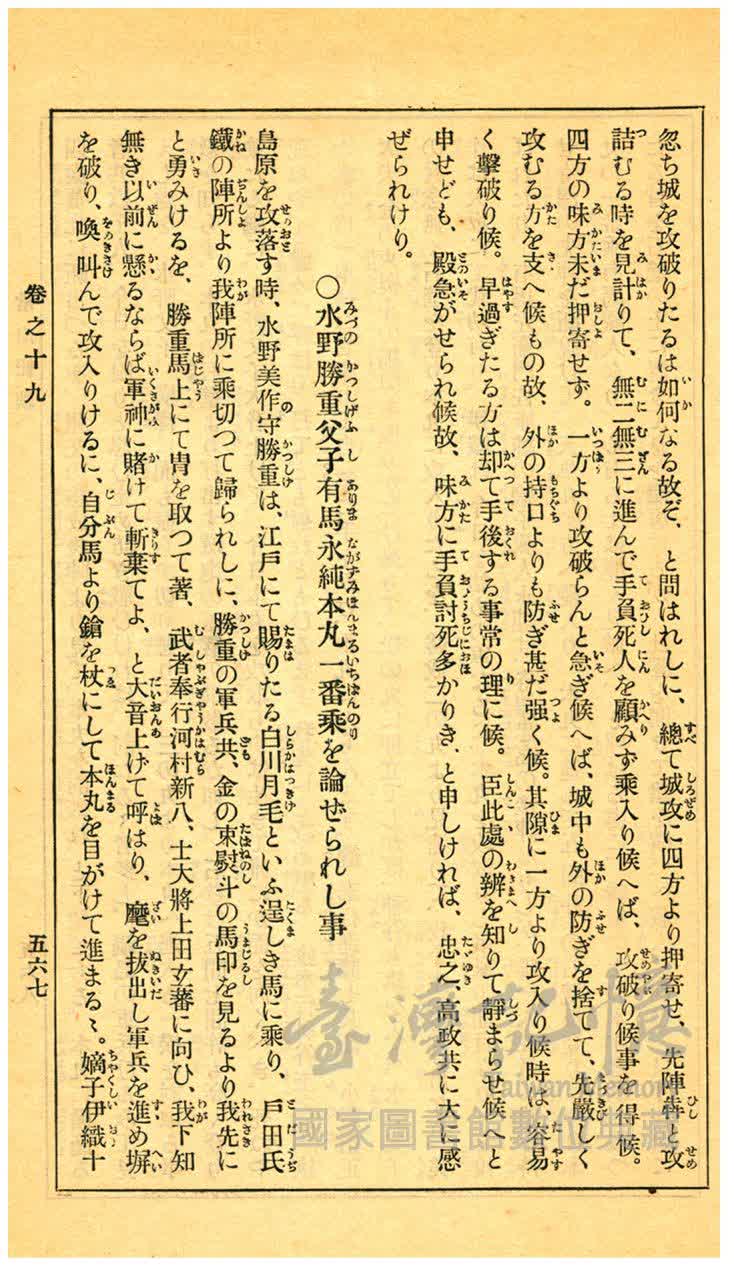 忽ち城を攻破りたるは如何なる故ぞ、と問はれしに、總て城攻に四方より押寄せ、先陣犇と攻
詰むる時を見計りて、無二無三に進んで手負死人を顧みず乘入り候へば、攻破り候事を得候。
四方の味方未だ押寄せず。一方より攻破らんと急ぎ候へば、城中も外の防ぎを捨てて、先嚴しく
攻むる方を支へ候もの故、外の持口よりも防ぎ甚だ强く候。其隙に一方より攻入り候時は、容易
く擊破り候。早過ぎたる方は却て手後する事常の理に候。臣此處の辨を知りて靜まらせ候へと
申せども、殿急がせられ候故、味方に手負討死多かりき、と申しければ、忠之、高政共に大に感
ぜられけり。
○水野勝重父子有馬永純本丸一番乘を論ぜられし事
島原を攻落す時、水野美作守勝重は、江戶にて賜りたる白川月毛といふ逞しき馬に乘り、戶田氏
鐵の陣所より我陣所に乘切つて歸られしに、勝重の軍兵共、金の束熨斗の馬印を見るより我先に
と勇みけるを、勝重馬上にて冑を取つて著、武者奉行河村新八、士大將上田玄蕃に向ひ、我下知
無き以前に懸るならば軍神に賭けて斬棄てよ、と大音上げて呼はり、麾を拔出し軍兵を進め塀
を破り、喚叫んで攻入りけるに、自分馬より鎗を杖にして本丸を目がけて進まるゝ。嫡子伊織十
卷之十九
五六七
臺灣記憶
Taiwan Memory
國家圖書館數位典藏